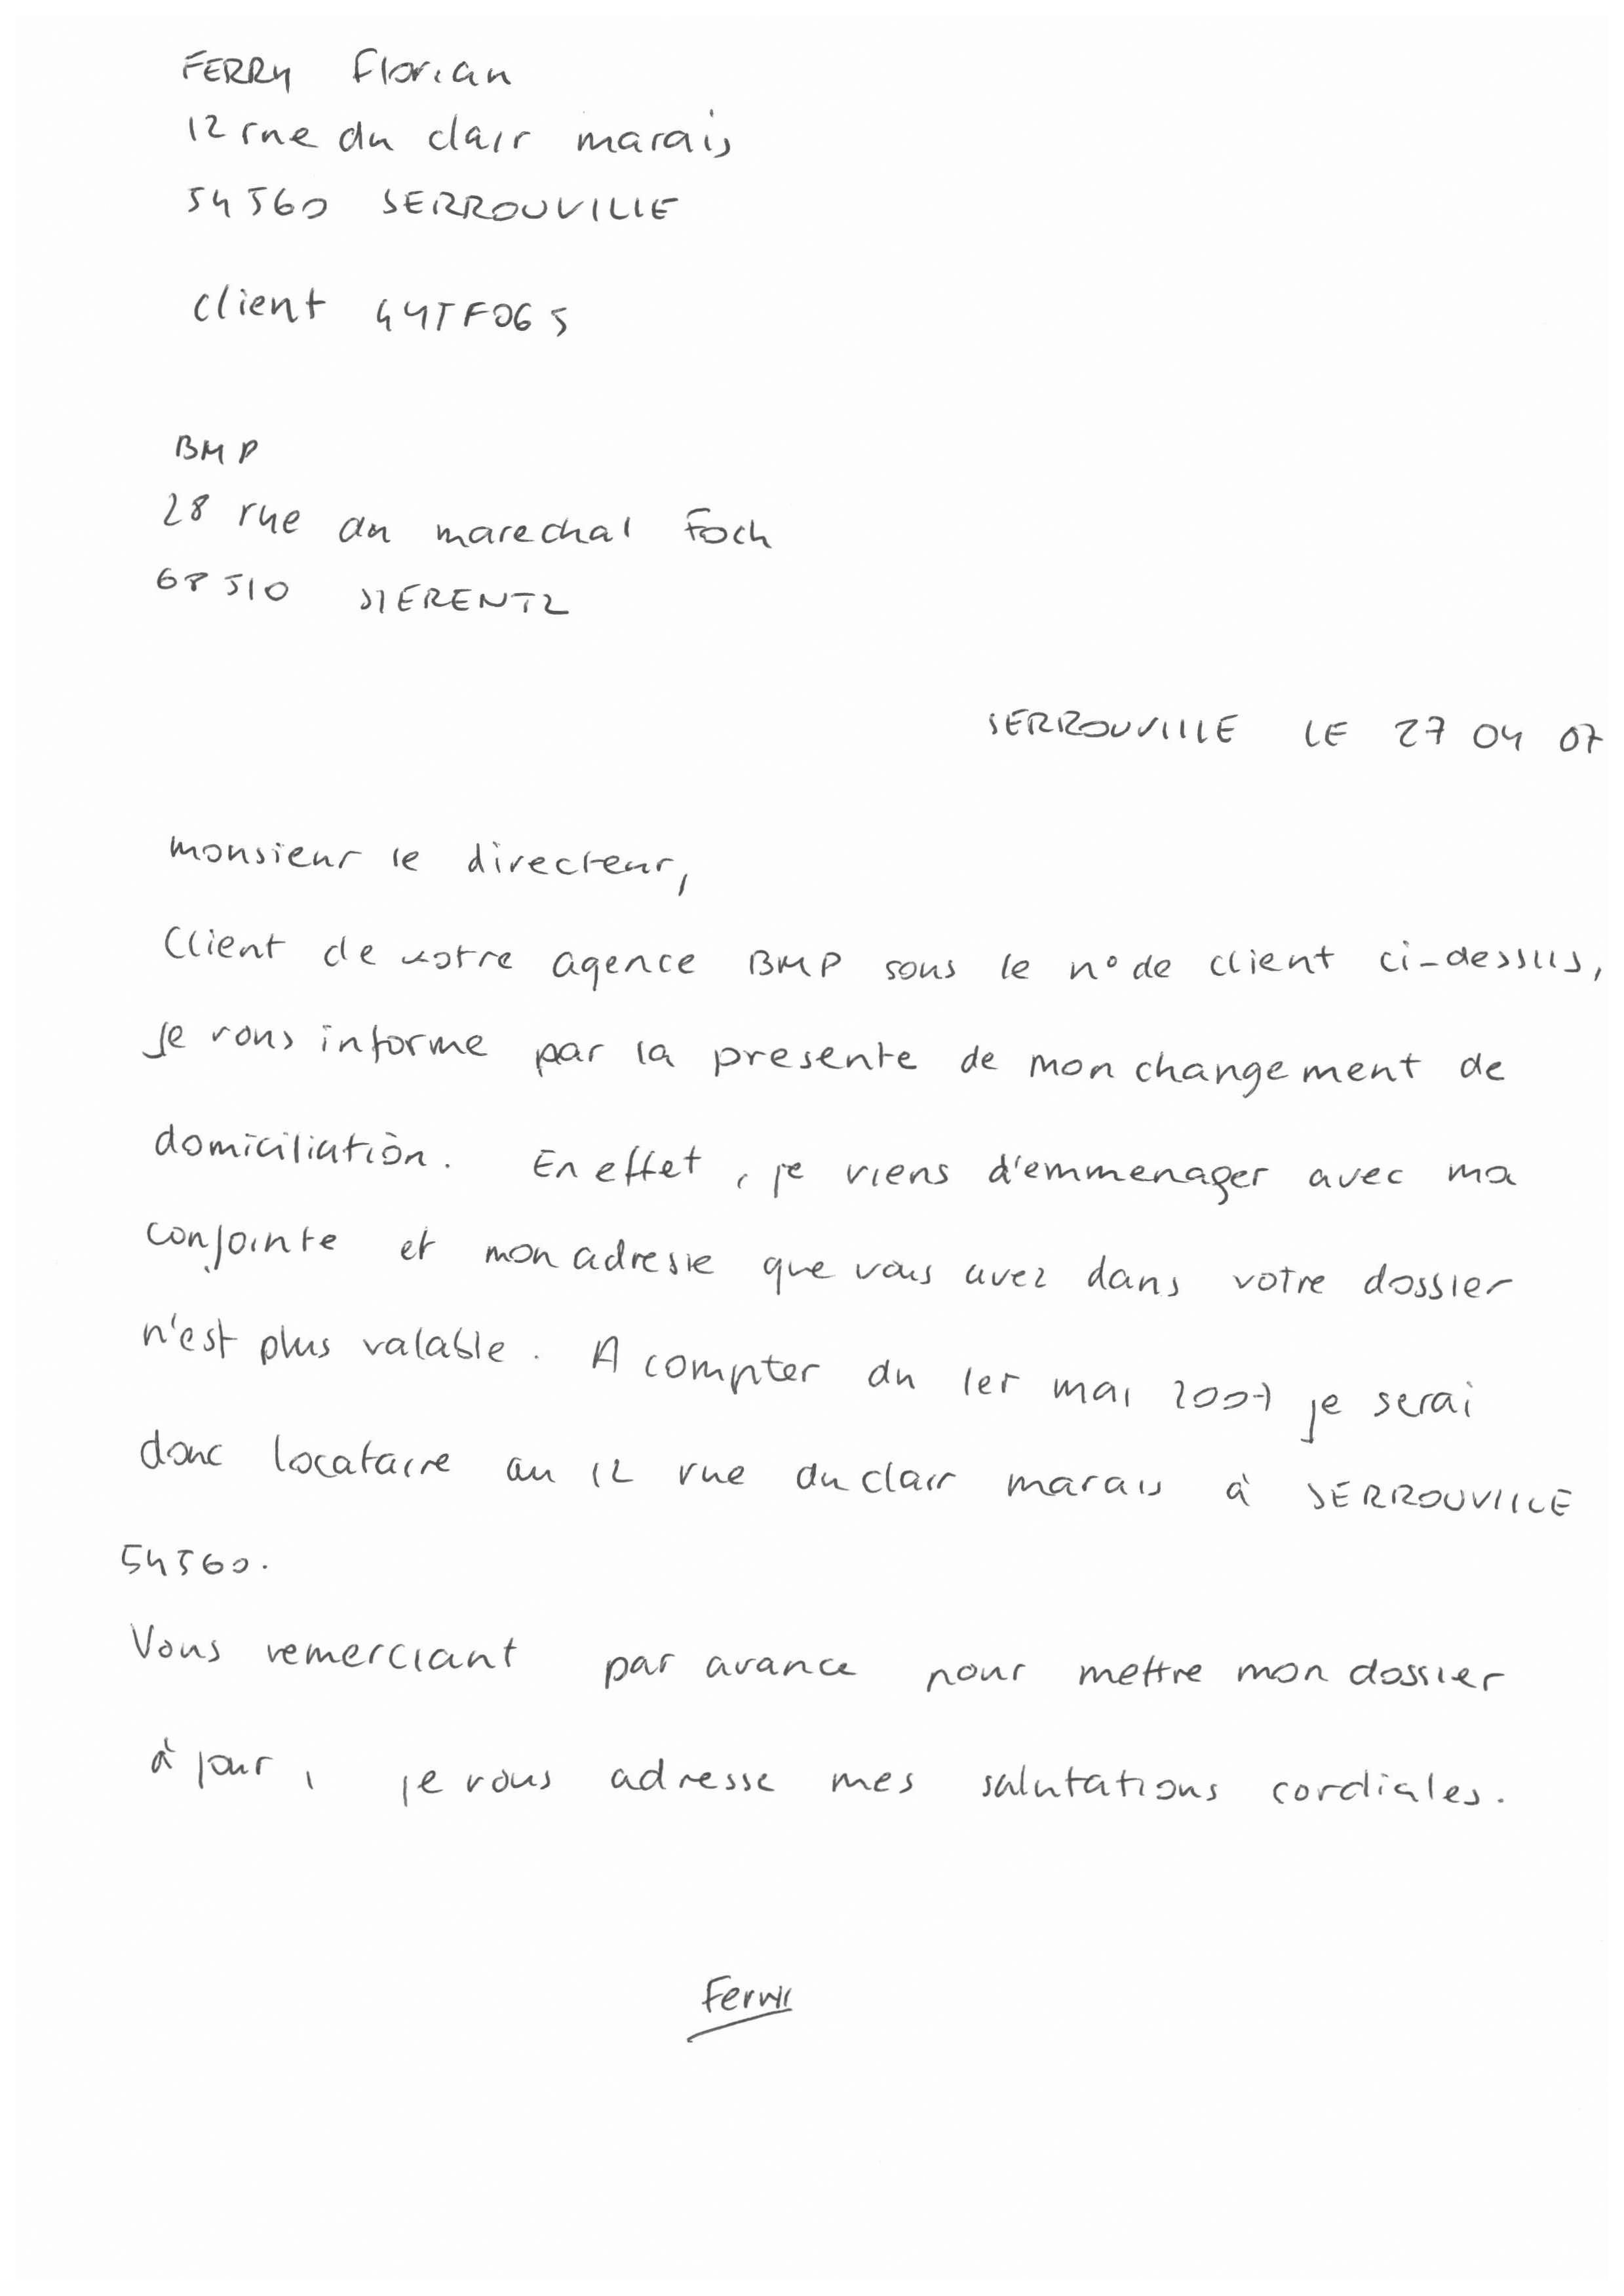 FERRY Florian
12 rue du clair marais
54560 SERROUVILLE
Client
BMP
28 rue du marechal Foch
68510 SIERENTZ
SERROUVILLE LE 27 04 07
monsieur le directeur,
Client de votre agence BMP sous le n° de client ci-dessus,
Je vous informe par la presente de mon changement de
domiciliation. En effet, je viens d'emmenager avec ma
conjointe et mon adresse que vous avez dans votre dossier
n'est plus valable. A compter du 1er mai 2007 je serai
donc locataire au 12 rue du clair marais à SERROUVILLE
54560.
Vous remerciant par avance pour mettre mon dossier
à jour, je vous adresse mes salutations cordiales.